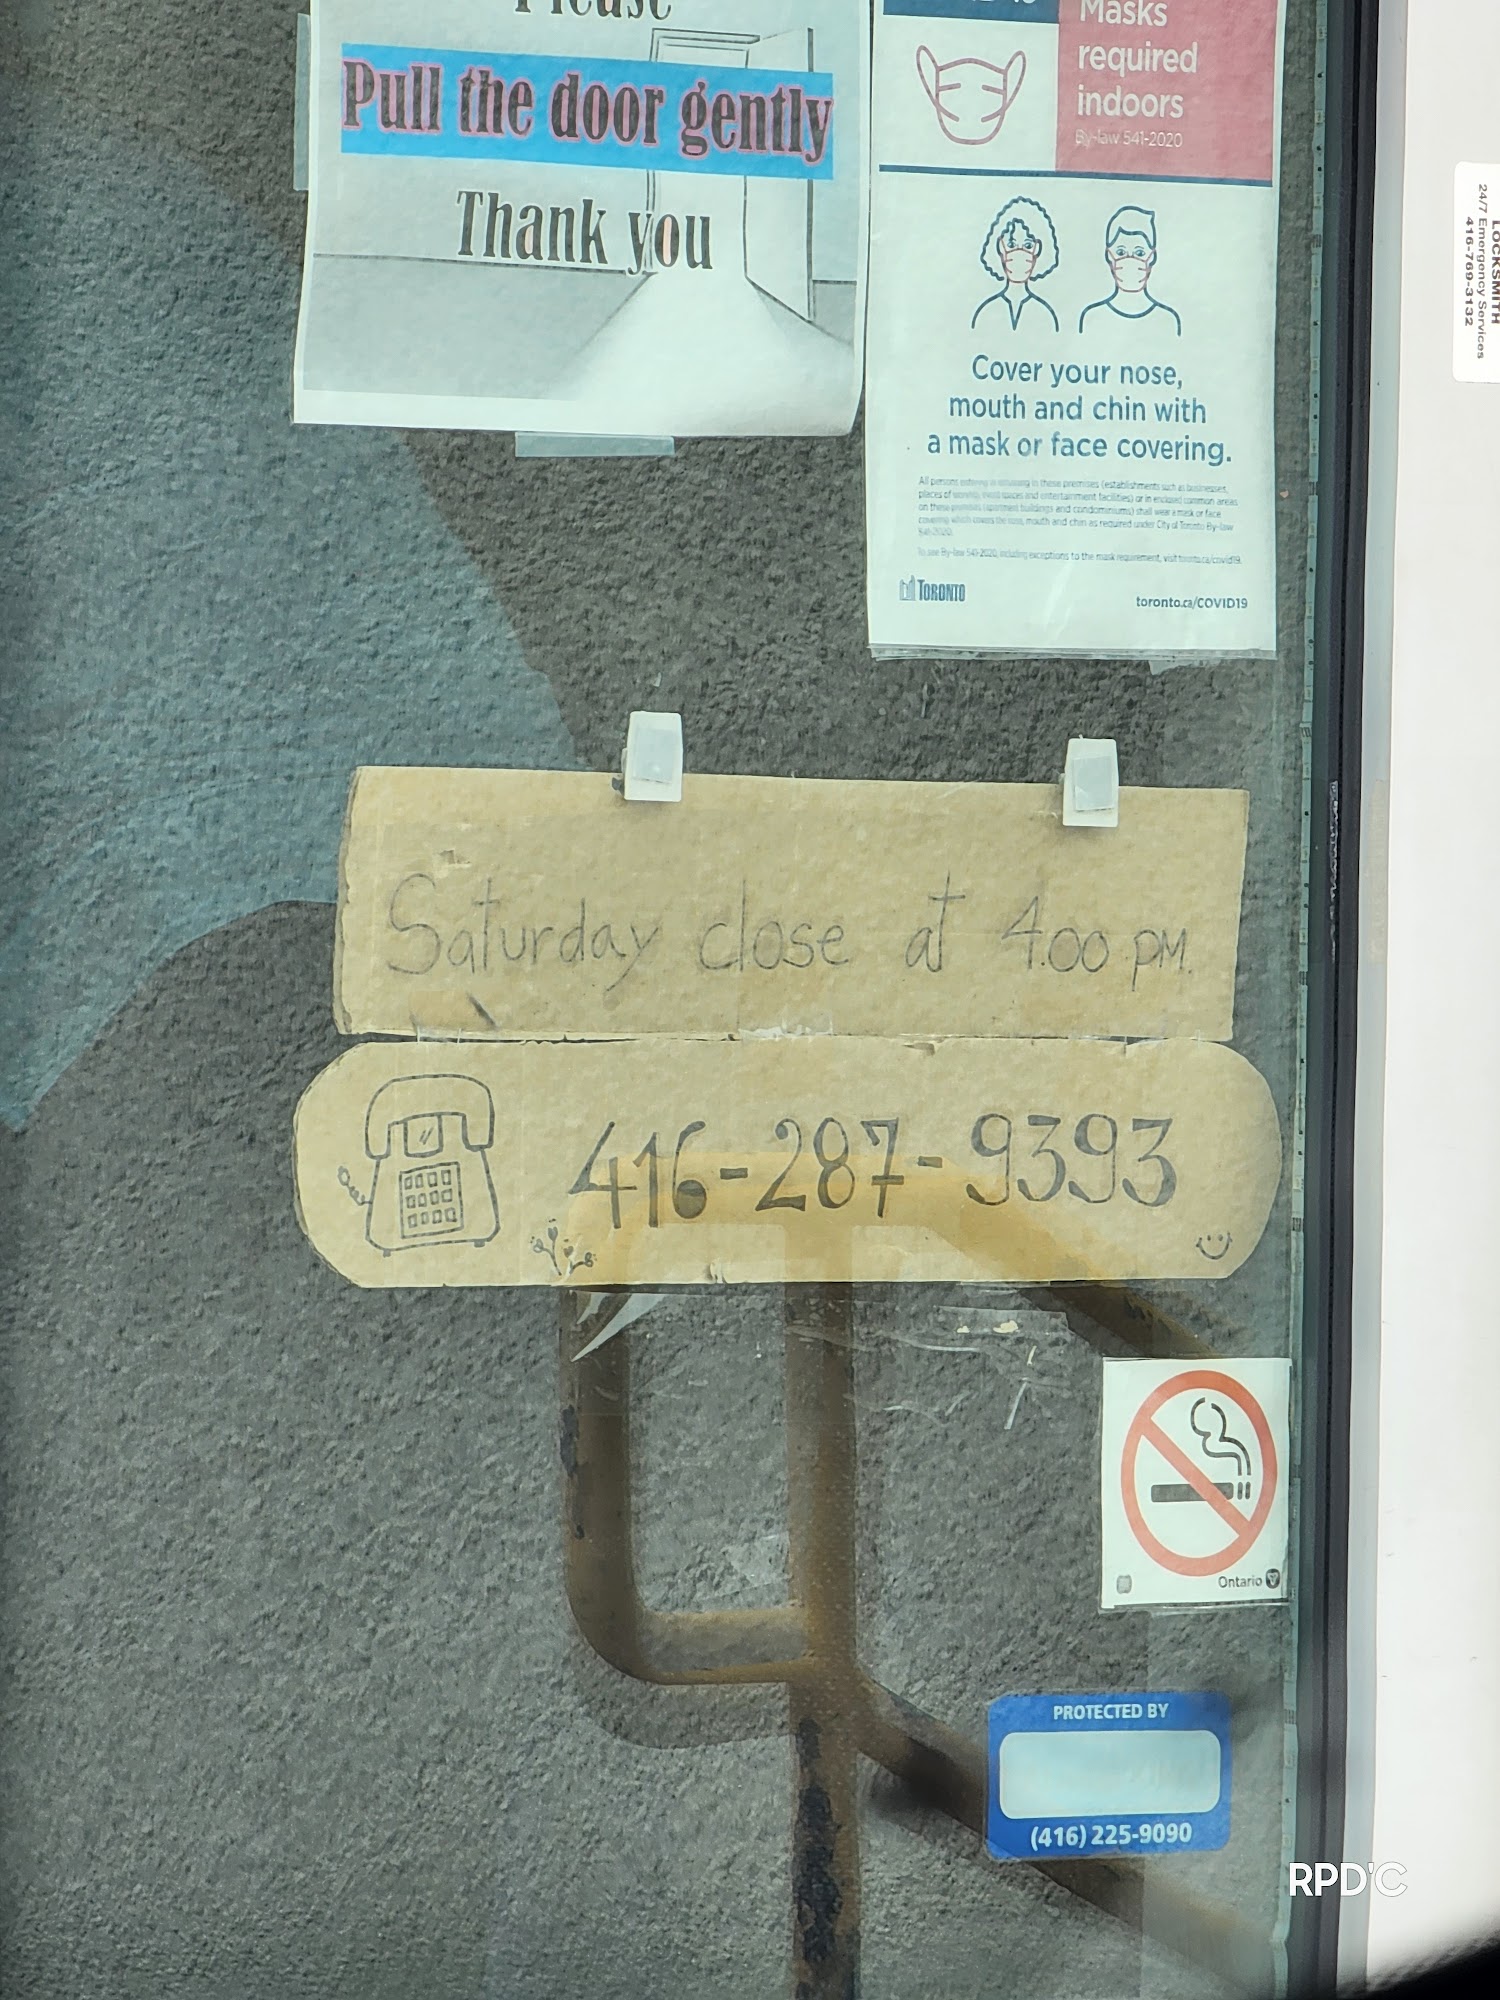 Please
Pull the door gently
Thank you
Masks
required
indoors
By-law 541-2020
Cover your nose,
mouth and chin with
a mask or face covering.
All persons entering or remaining in these premises (establishments such as businesses,
places of worship, event spaces and entertainment facilities) or in enclosed common areas
on these premises (apartment buildings and condominiums) shall wear a mask or face
covering which covers the nose, mouth and chin as required under City of Toronto By-law
541-2020.
To see By-law 541-2020, including exceptions to the mask requirement, visit toronto.ca/covid19.
TORONTO
toronto.ca/COVID19
LOCKSMITH
24/7 Emergency Services
416-769-3132
Saturday close at 4.00 PM.
416-287-9393
Ontario
PROTECTED BY
(416) 225-9090
RPD'C